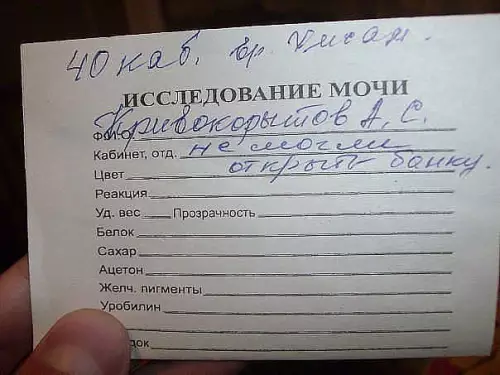 40 каб. вр.
ИССЛЕДОВАНИЕ МОЧИ
Ф.И.О. Кривокорытов А. С.
Кабинет, отд. не могли
Цвет открыть банку.
Реакция
Уд. вес Прозрачность
Белок
Сахар
Ацетон
Желч. пигменты
Уробилин